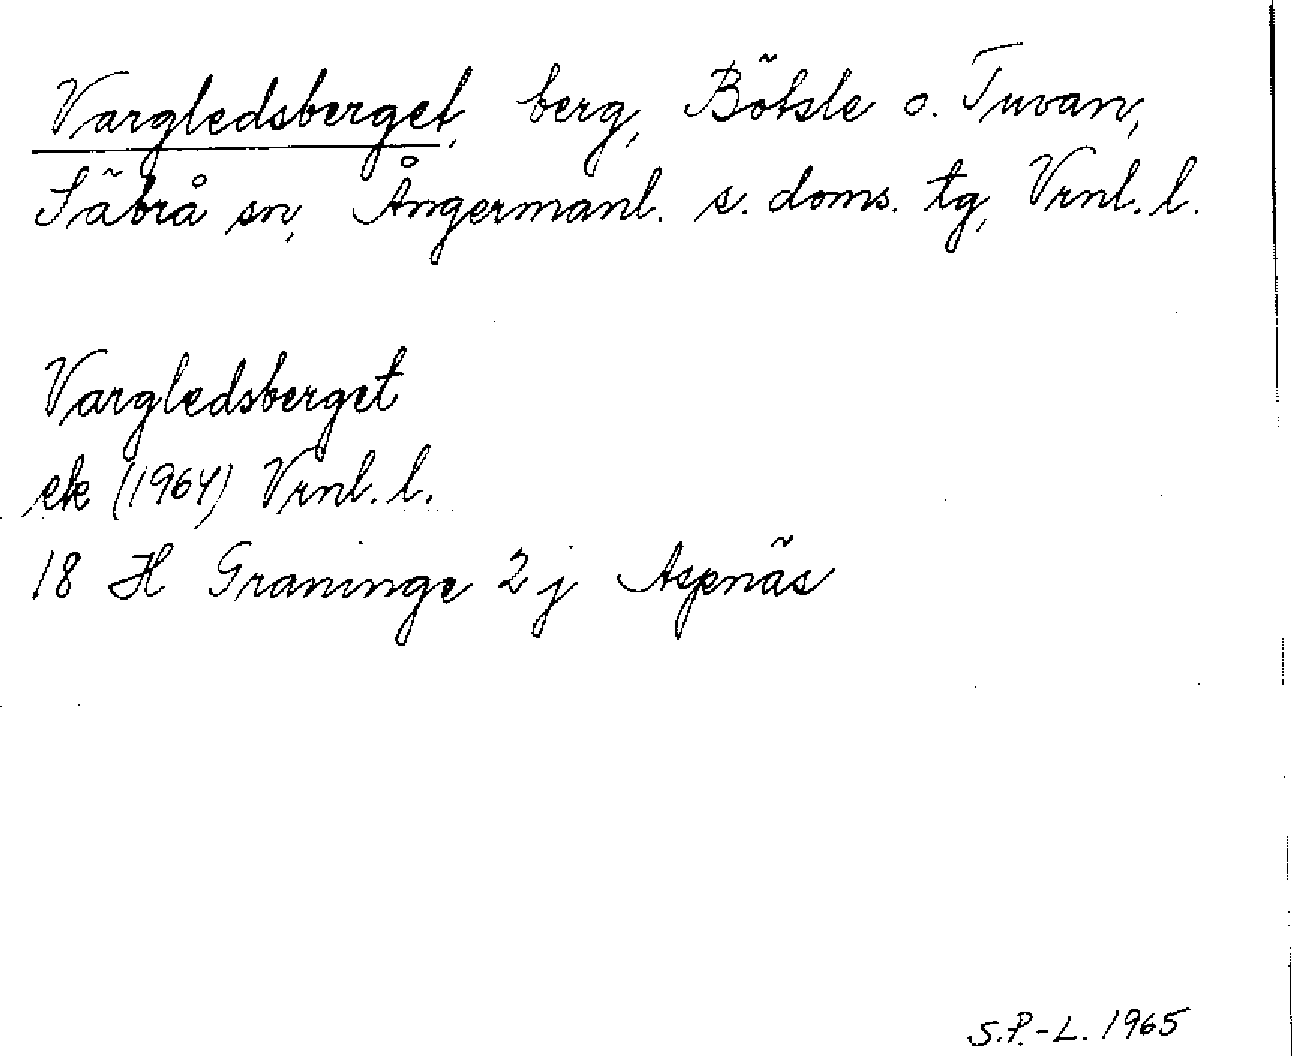 Vargledsberget, berg, Bölsle o. Tuvan,
Säbrå sn, Ångermanl. s. doms. tg, Vrnl. l.
Vargledsberget
ek (1964) Vrnl. l.
18 H Graninge 2 j Aspnäs
S.P.-L. 1965